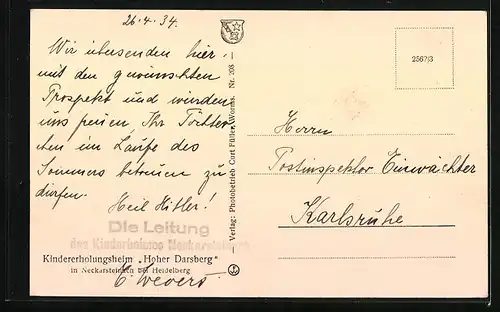 26.4.34.
Wir übersenden hier-
mit den gewünschten
Prospekt und würden
uns freuen Ihr Töchter-
chen im Laufe des
Sommers betreuen zu
dürfen.
Heil Hitler!
Die Leitung
des Kinderheimes Neckarsteinach
Kindererholungsheim „Hoher Darsberg“
in Neckarsteinach bei Heidelberg
C. Wevers
— Verlag: Photobetrieb Curt Füller, Worms. Nr. 208 —
2562/3
Herrn
Postinspektor Einwächter
Karlsruhe